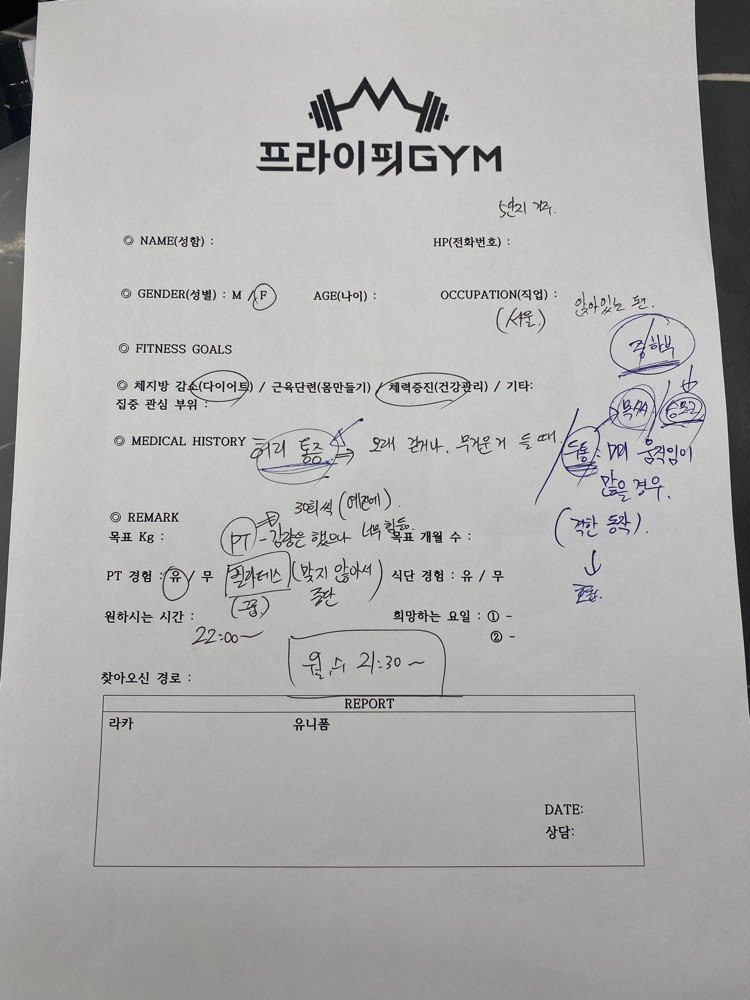 프라이핏GYM
5단지 거주.
◎ NAME(성함) : HP(전화번호) :
◎ GENDER(성별) : M / F AGE(나이) : OCCUPATION(직업) : 앉아있는 편.
(서울.)
◎ FITNESS GOALS
중하부
◎ 체지방 감소(다이어트) / 근육단련(몸만들기) / 체력증진(건강관리) / 기타:
집중 관심 부위 :
목 / 승모근
◎ MEDICAL HISTORY 허리 통증 ⇒ 오래 걷거나, 무거운 거 들 때.
두통 : 움직임이
많을 경우.
30회씩 (예전에).
◎ REMARK
(격한 동작).
목표 Kg : PT - 감량은 했으나 너무 힘듦. 목표 개월 수 :
PT 경험 : 유 / 무 필라테스 (맞지 않아서 중단) 식단 경험 : 유 / 무
(그룹)
원하시는 시간 : 희망하는 요일 : ① -
22:00~
② -
월, 수 21:30 ~
찾아오신 경로 :
REPORT
라카 유니폼
DATE:
상담: